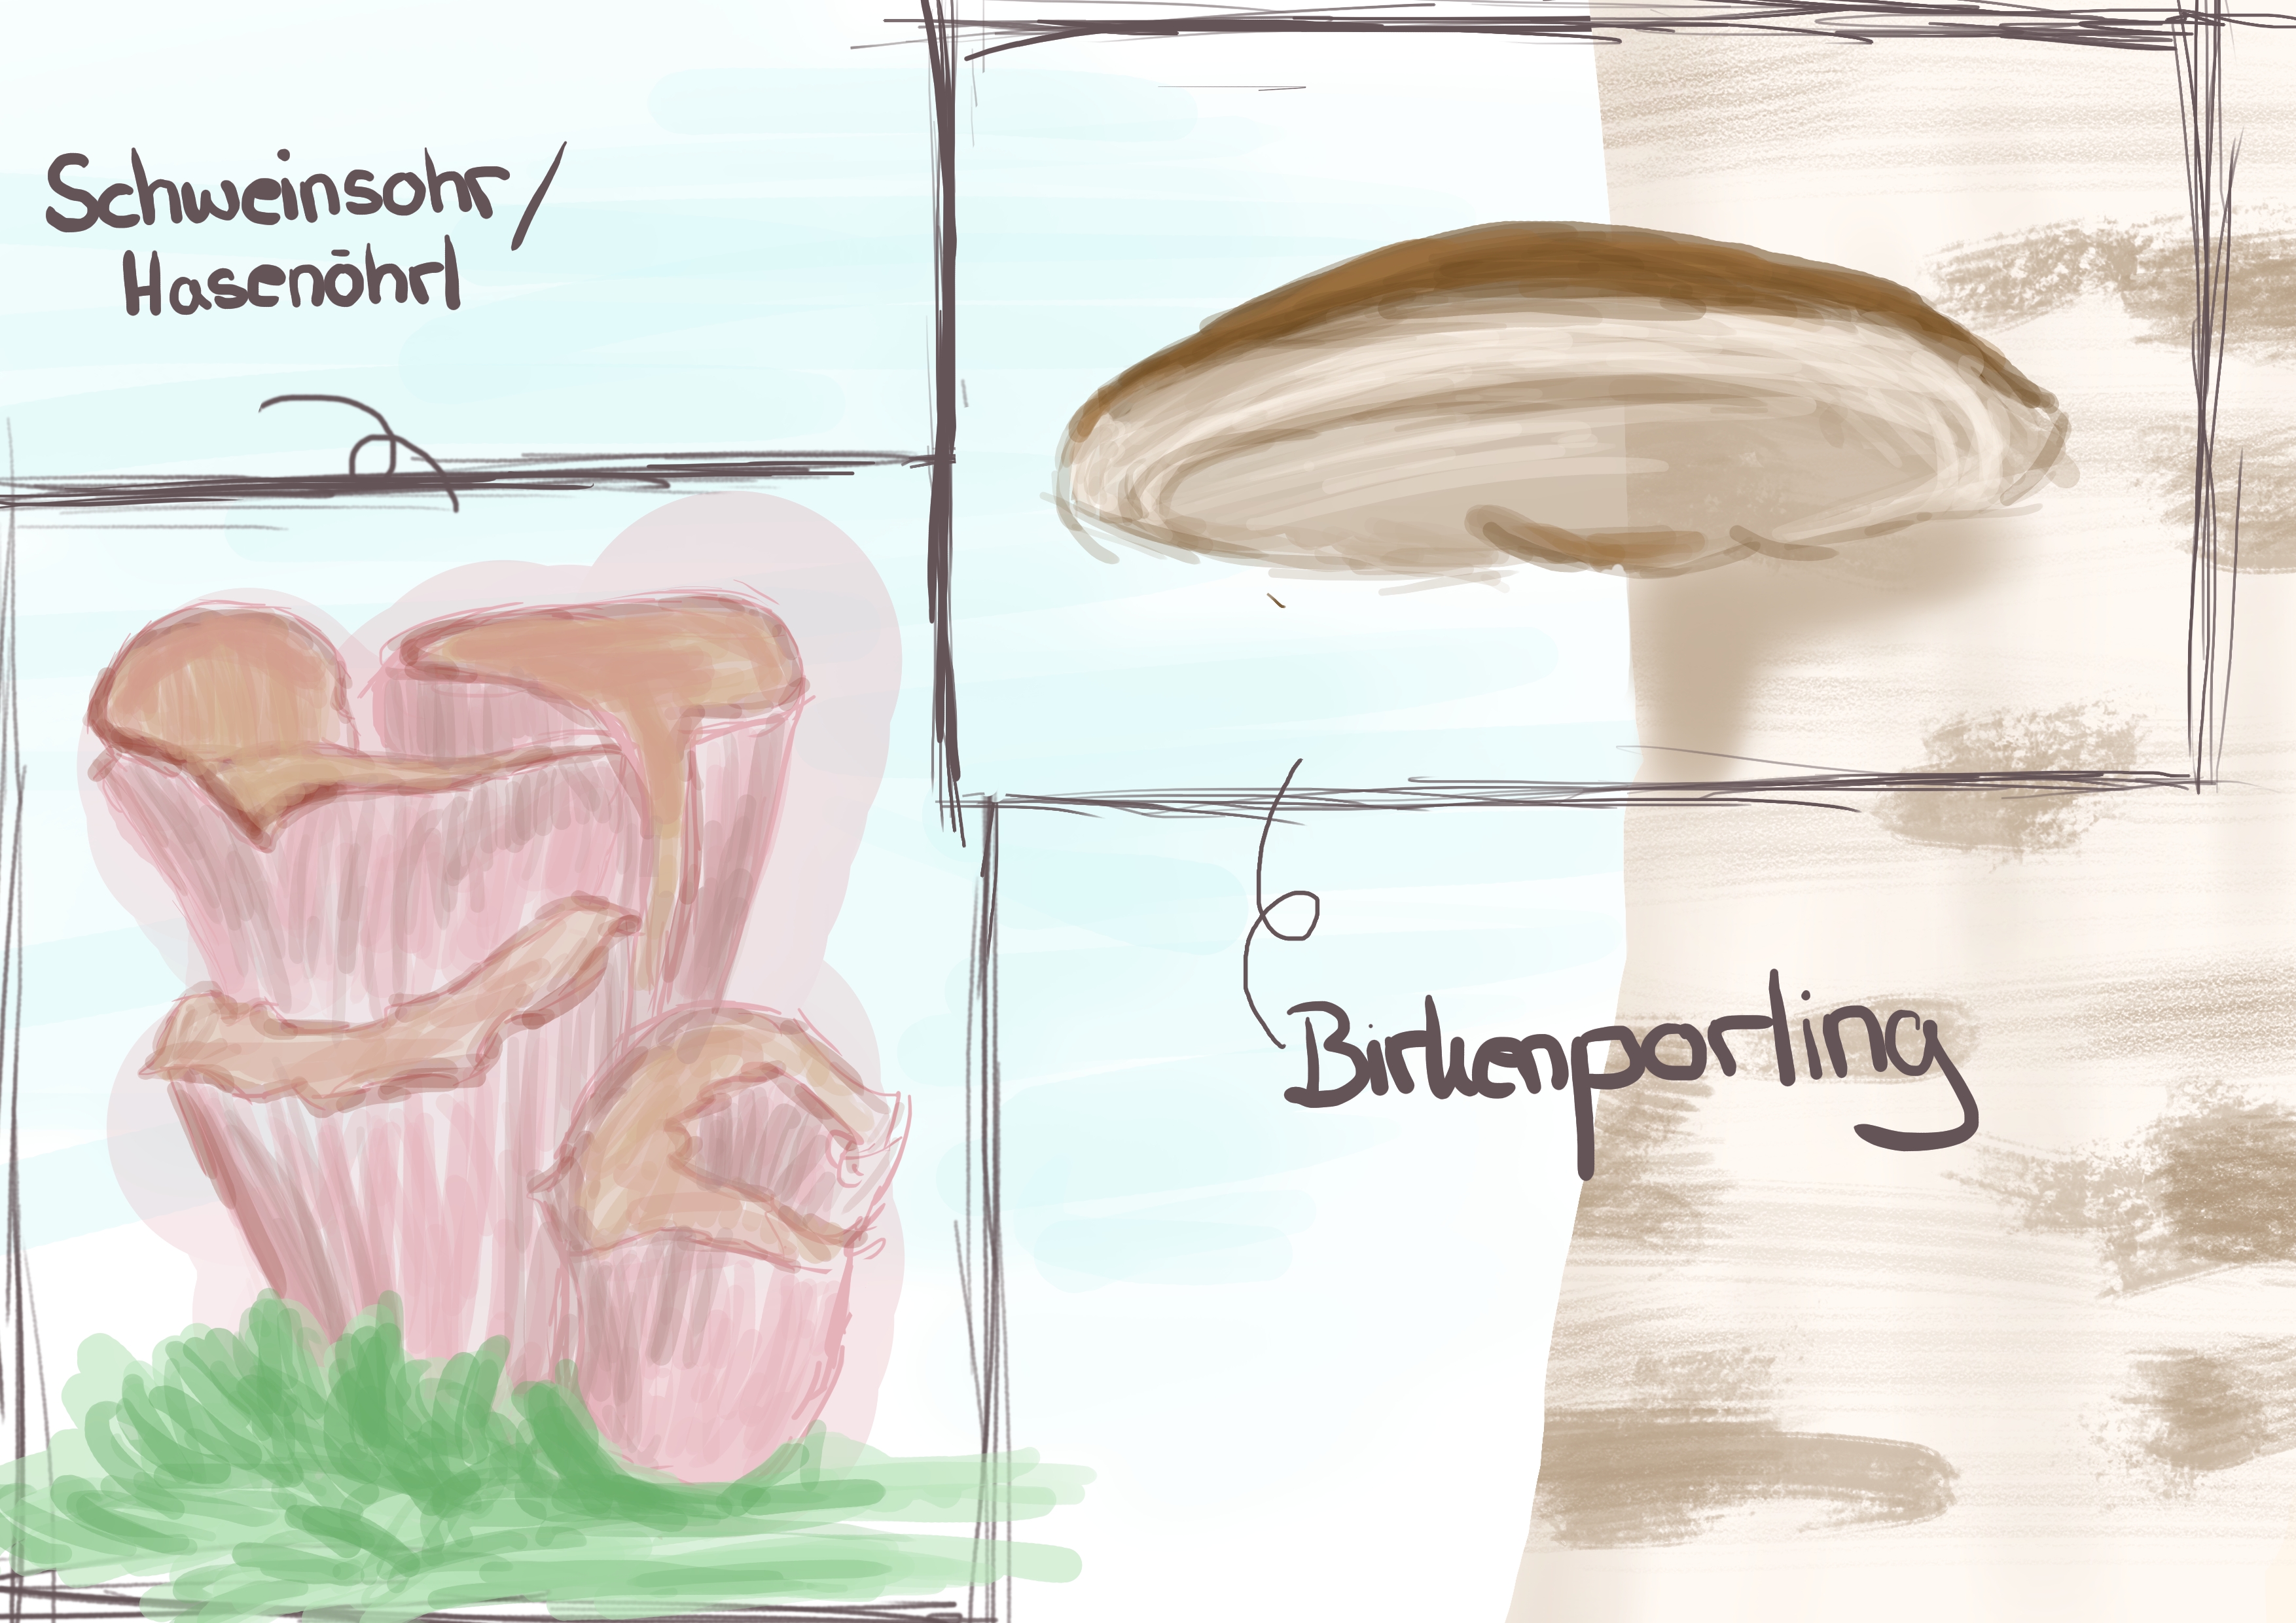 Schweinsohr/
Hasenöhrl
Birkenporling